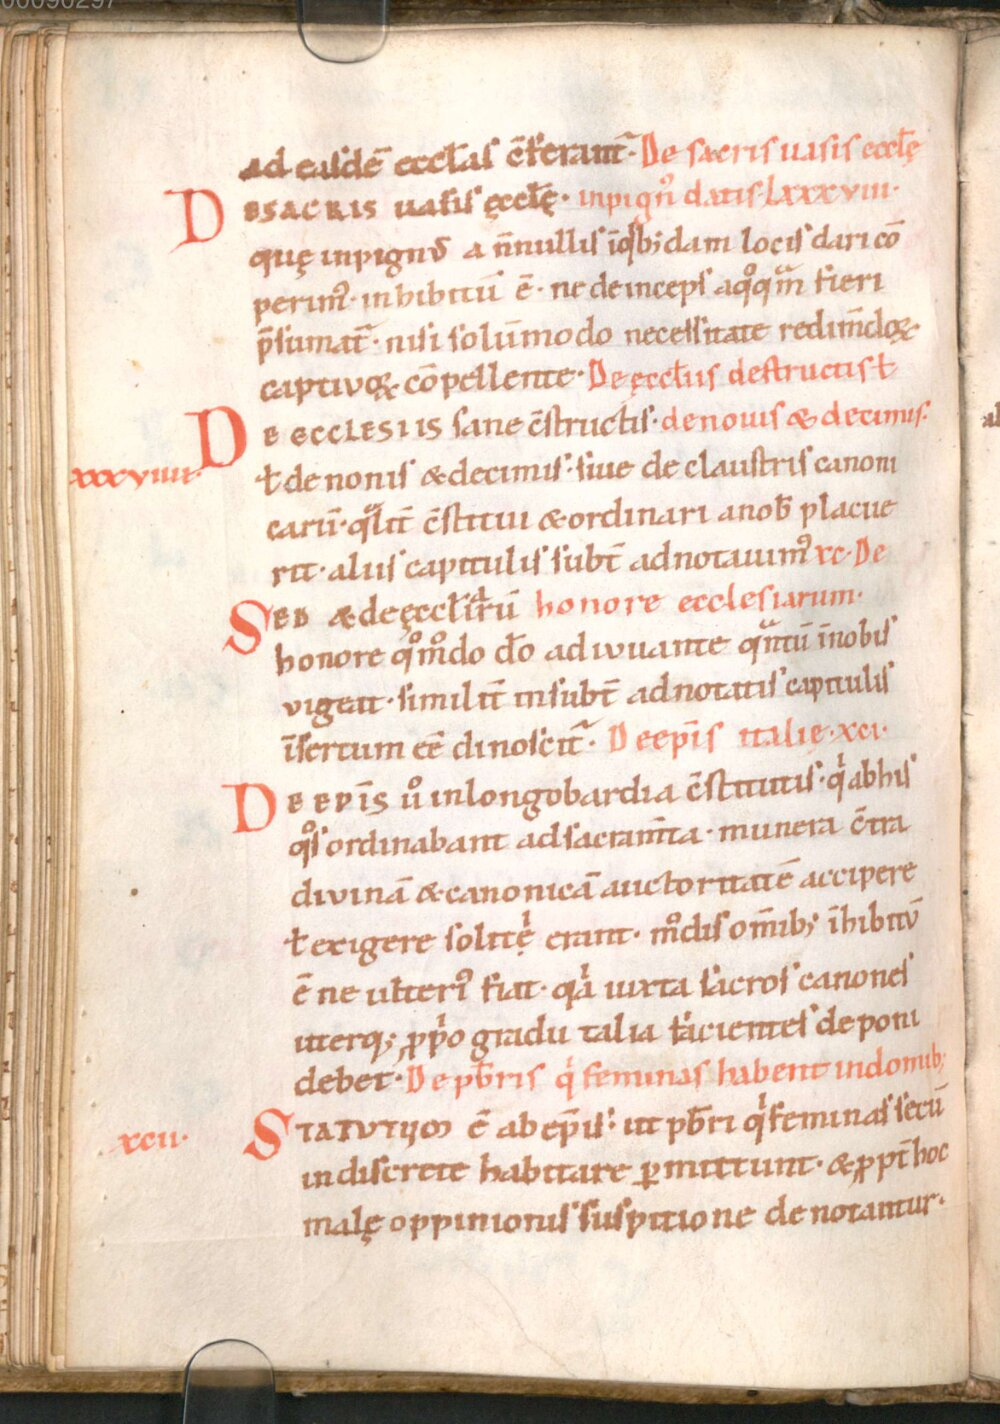 00090297
ad easdē eccl̄as c̄ferant᷑· De sacris uasis eccl̄ę
DE SACRIS uasis ęccl̄ę· inpignꝰ datis· lxxxviii·
quę inpignō a n̄nullis īqͦsb; dam locis dari cō
perimꝰ· inhibitū ē· ne deinceps aqͦqͣm fieri
p̄sumat᷑· nisi solūmodo necessitate redim̄doꝝ·
captivoꝝ cōpellente· De ęccl̄iis destructis ł
DE ECCLESIIS sane c̄structis· de novis & decimis·
xxxviiii· ł de nonis & decimis· siue de claustris canoni
carū· qͣlit̄ c̄stitui & ordinari a nob̄ placue
rit· aliis capitulis subt̄ adnotauimꝰ xc· De
SED & de ęccl̄iaꝝū honore ecclesiarum·
honore qͦmͦdo dō adiuuante qͣntū īnobis
vigeat· similit̄ insubt̄ adnotatis capitulis
īsertum eē dinoscit᷑· De ep̄is italię· xci·
DE EP̄IS uͦ inlongobardia c̄stitutis· qͥ abhis
qͦs ordinabant adsacram̄ta· munera c̄tra
divinā & canonicā auctoritatē accipere
ł exigere solitęͥ erant· mͦdis om̄ib; īhibitū
ē ne ulteriꝰ fiat· qͥa iuxta sacros canones
uterq; ꝓpͥo gradu talia facientes deponi
debet· De pb̄ris qͥ feminas habent indomib;
xcii· STATUTUM ē ab ep̄is· ut pb̄ri qͥ feminas secū
indiscrete habitare ꝑmittunt· & ꝓpt̄ hoc
malę oppinionis suspitione denotantur·